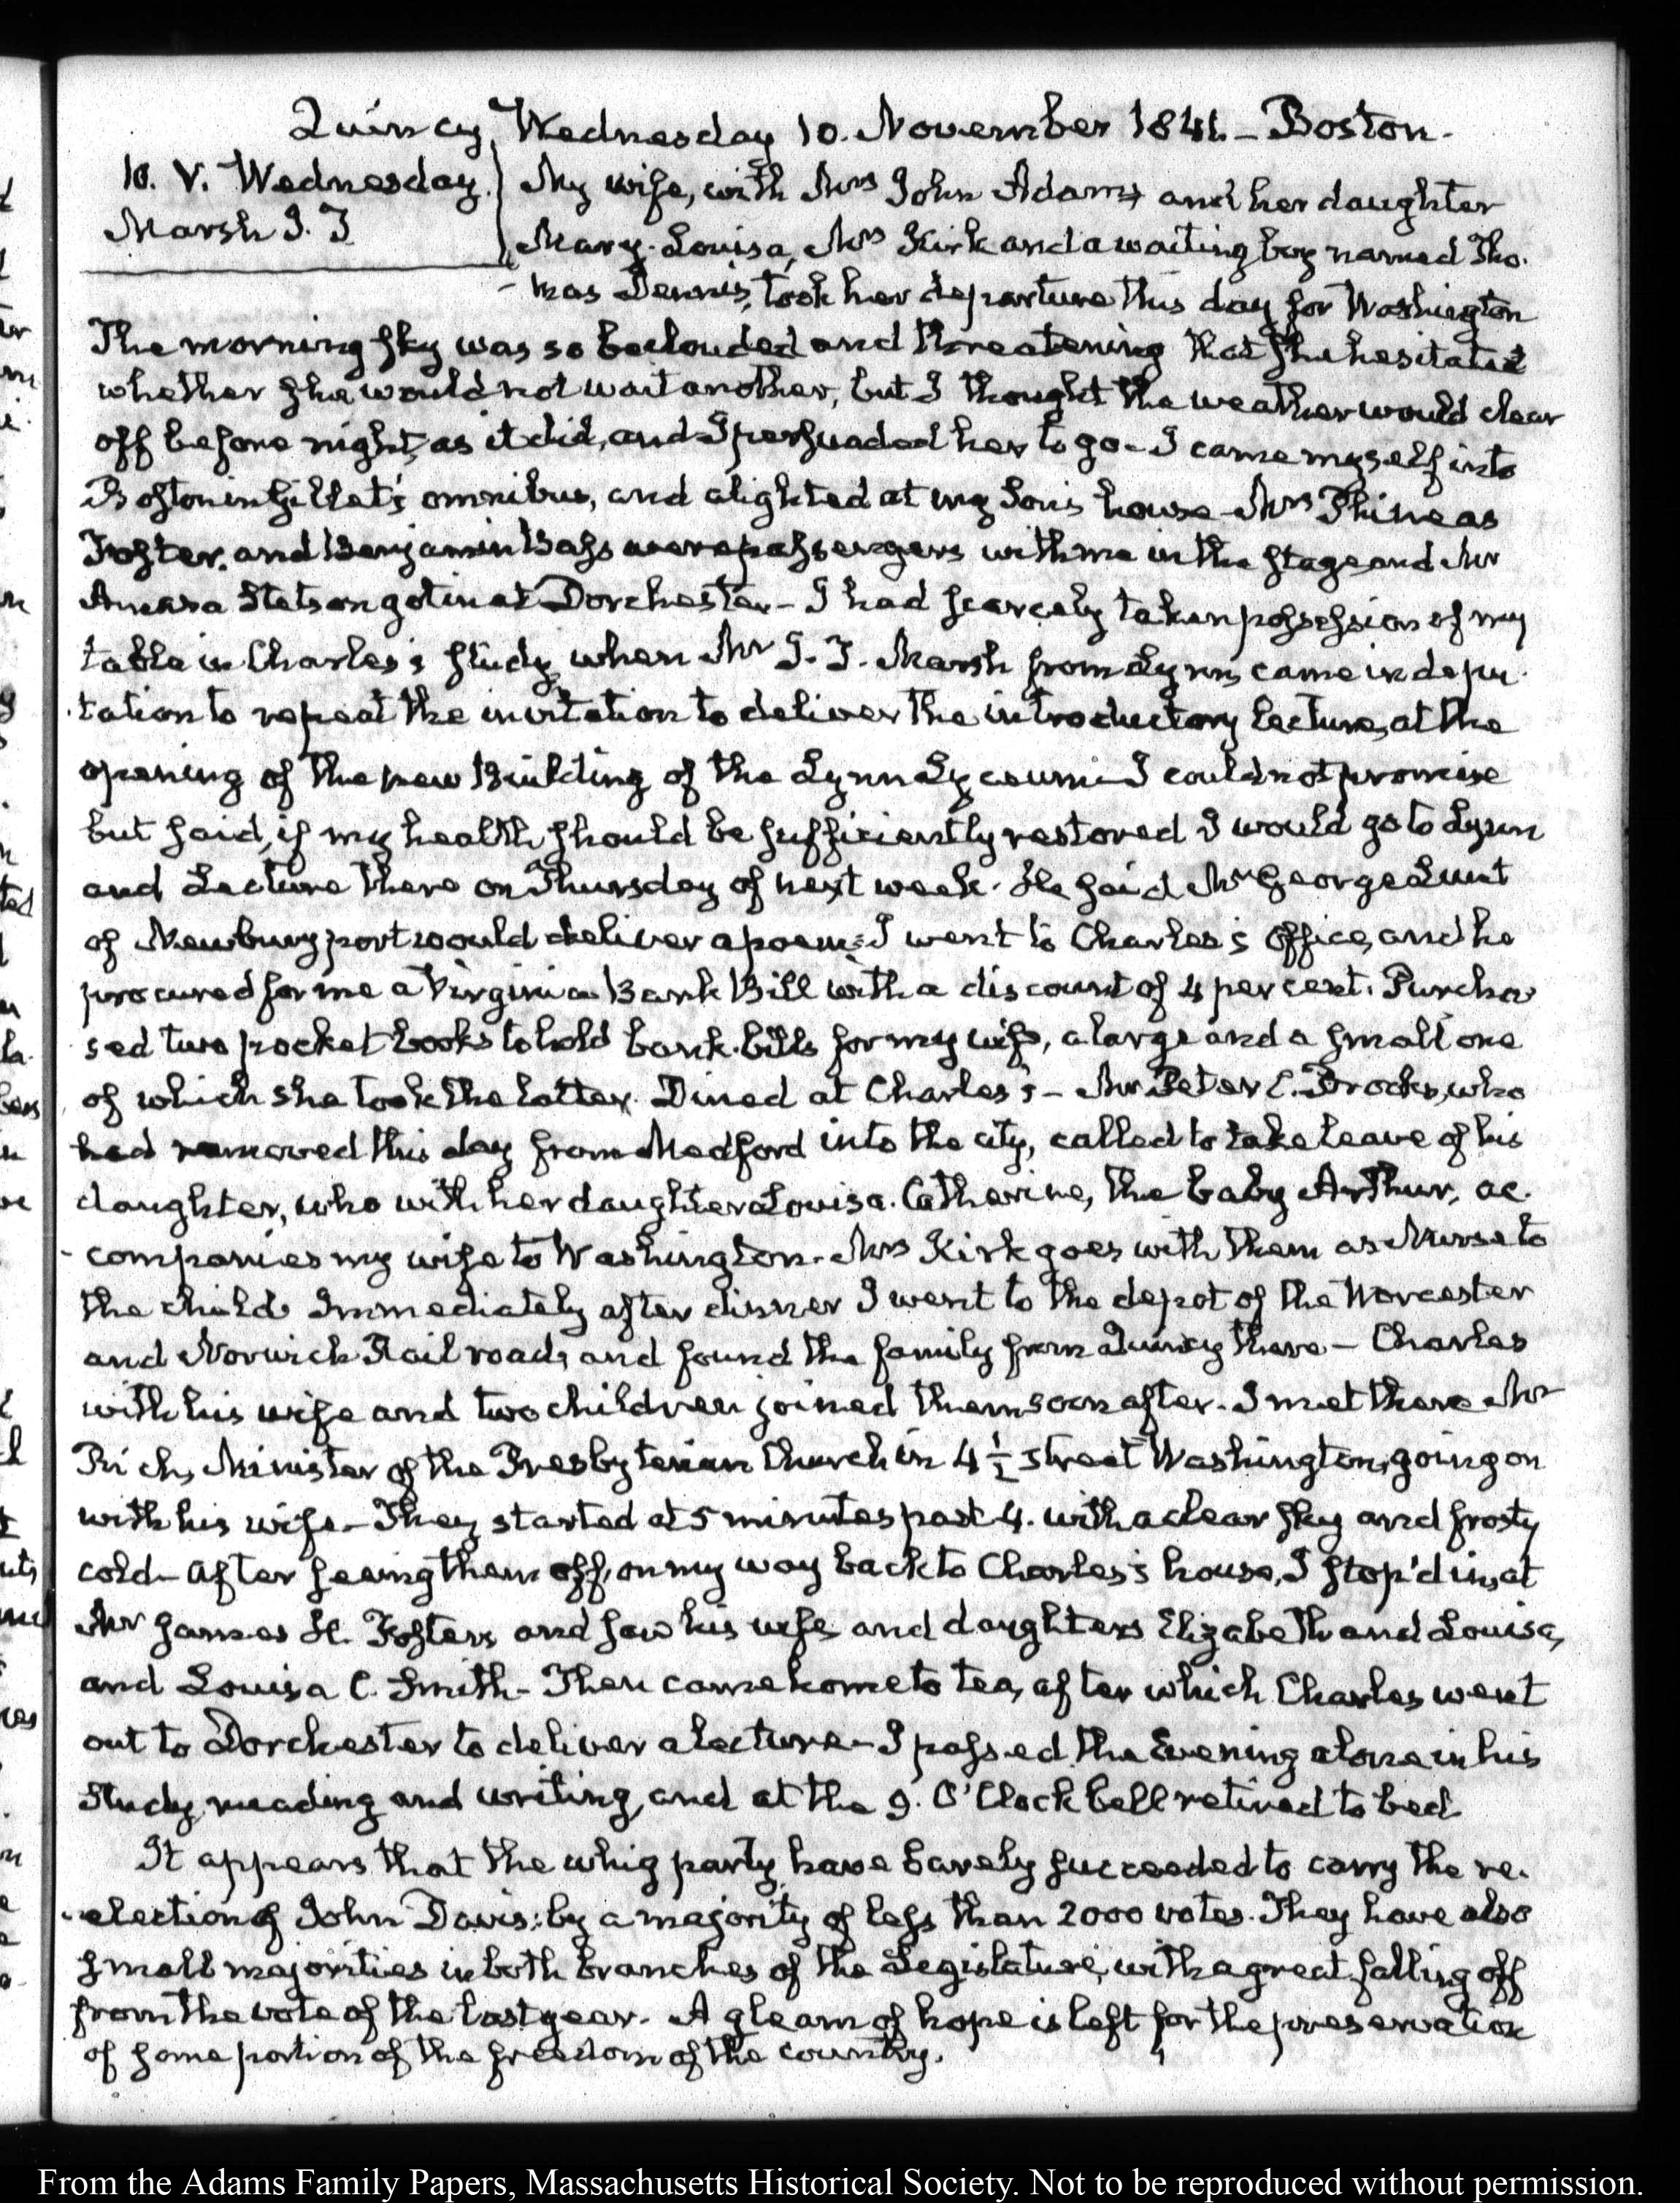 Quincy, Wednesday 10. November 1841.– Boston.
10. V. Wednesday.
Marsh J. J
My wife, with Mrs John Adams and her daughter
Mary-Louisa, Mrs Kirk and a waiting boy named Tho-
-mas Dennis, took her departure this day for Washington
The morning sky was so beclouded and threatening that she hesitated
whether she would not wait another, but I thought the weather would clear
off before night, as it did, and I persuaded her to go– I came myself into
Boston in Gillet's omnibus, and alighted at my Son's house– Mrs Phineas
Foster, and Benjamin Bass were passengers with me in the stage and Mr
Amasa Stetson got in at Dorchester– I had scarcely taken possession of my
table in Charles's study, when Mr J. J. Marsh from Lynn, came in depu-
-tation to repeat the invitation to deliver the introductory Lecture, at the
opening of the new Building of the Lynn Lyceum– I could not promise
but said, if my health should be sufficiently restored I would go to Lynn
and Lecture there on Thursday of next week. He said Mr George Lunt
of Newburyport would deliver a poem– I went to Charles's Office, and he
procured for me a Virginia Bank Bill with a discount of 4 per cent. Purcha-
sed two pocket books to hold bank-bills for my wife, a large and a small one
of which she took the latter. Dined at Charles's– Mr Peter C. Brooks, who
had removed this day from Medford into the city, called to take leave of his
daughter, who with her daughter Louisa-Catherine, the baby Arthur, ac-
-companies my wife to Washington– Mrs Kirk goes with them as Nurse to
the child. Immediately after dinner I went to the depot of the Worcester
and Norwich Railroad, and found the family from Quincy there– Charles
with his wife and two children joined them soon after. I met there Mr
Rich, Minister of the Presbyterian Church in 4½ street Washington, going on
with his wife– They started at 5 minutes past 4. with a clear sky and frosty
cold– After seeing them off, on my way back to Charles's house, I stop'd in, at
Mr James H. Foster's and saw his wife and daughters Elizabeth and Louisa,
and Louisa C. Smith– Then came home to tea, after which Charles went
out to Dorchester to deliver a Lecture– I passed the Evening alone in his
Study, reading and writing, and at the 9. O'Clock bell retired to bed
It appears that the whig party, have barely succeeded to carry the re-
-election of John Davis: by a majority of less than 2000 votes. They have also
small majorities in both branches of the Legislature, with a great falling off
from the vote of the last year. A gleam of hope is left for the preservation
of some portion of the freedom of the country.
From the Adams Family Papers, Massachusetts Historical Society. Not to be reproduced without permission.